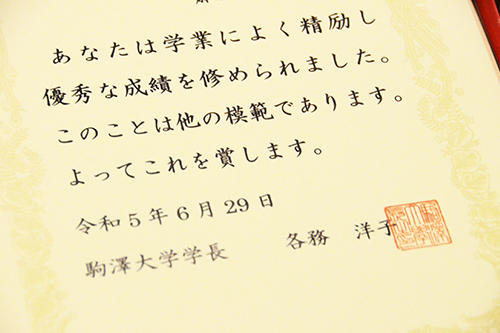 あなたは学業によく精励し
優秀な成績を修められました。
このことは他の模範であります。
よってこれを賞します。
令和5年6月29日
駒澤大学学長 各務 洋子